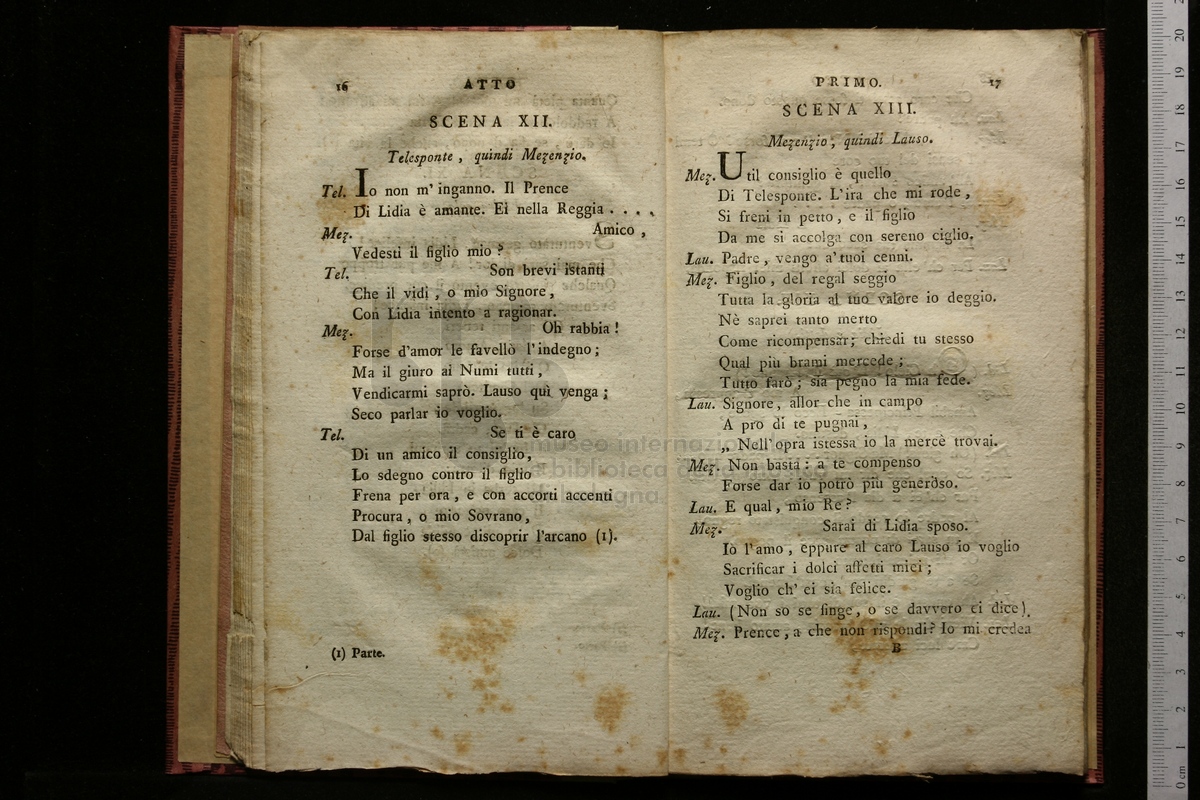 16 ATTO
SCENA XII.
Telesponte, quindi Mezenzio.
Tel. Io non m'inganno. Il Prence
Di Lidia è amante. Ei nella Reggia . . . .
Mez. Amico,
Vedesti il figlio mio?
Tel. Son brevi istanti
Che il vidi, o mio Signore,
Con Lidia intento a ragionar.
Mez. Oh rabbia!
Forse d'amor le favellò l'indegno;
Ma il giuro ai Numi tutti,
Vendicarmi saprò. Lauso quì venga;
Seco parlar io voglio.
Tel. Se ti è caro
Di un amico il consiglio,
Lo sdegno contro il figlio
Frena per ora, e con accorti accenti
Procura, o mio Sovrano,
Dal figlio stesso discoprir l'arcano (1).
(1) Parte.
PRIMO. 17
SCENA XIII.
Mezenzio, quindi Lauso.
Mez. Util consiglio è quello
Di Telesponte. L'ira che mi rode,
Si freni in petto, e il figlio
Da me si accolga con sereno ciglio.
Lau. Padre, vengo a' tuoi cenni.
Mez. Figlio, del regal seggio
Tutta la gloria al tuo valore io deggio.
Nè saprei tanto merto
Come ricompensar; chiedi tu stesso
Qual più brami mercede;
Tutto farò; sia pegno la mia fede.
Lau. Signore, allor che in campo
A pro di te pugnai,
„ Nell'opra istessa io la mercè trovai.
Mez. Non basta: a te compenso
Forse dar io potrò più generoso.
Lau. E qual, mio Re?
Mez. Sarai di Lidia sposo.
Io l'amo, eppure al caro Lauso io voglio
Sacrificar i dolci affetti miei;
Voglio ch' ei sia felice.
Lau. (Non so se finge, o se davvero ei dice).
Mez. Prence, a che non rispondi? Io mi credea
B
museo internazio
biblioteca della musica
bologna